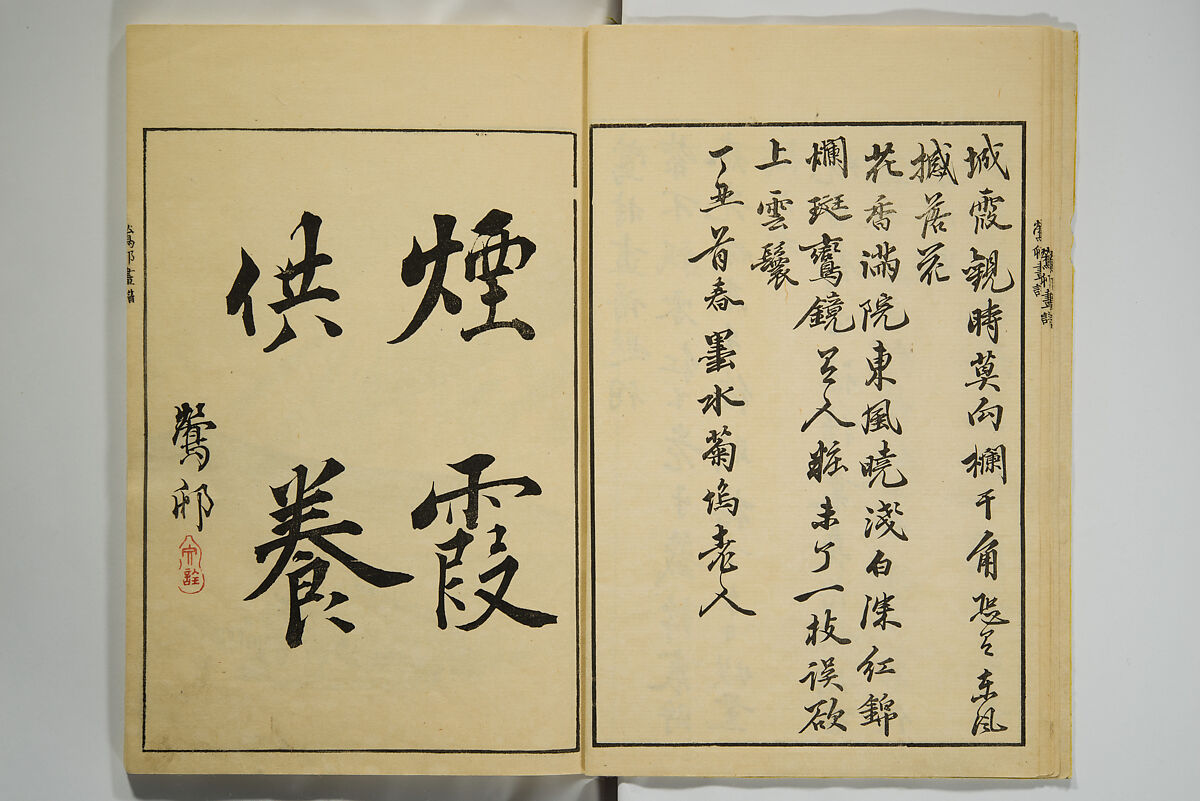 城霞觀時莫向欄干角恐是東風
撼落花
花香滿院東風曉淺白深紅錦
爛斑鸞鏡美人粧未了一枝誤欲
上雲鬟
丁丑首春墨水菊塢老人
煙霞
供養
鶯邨
鶯邨畫譜